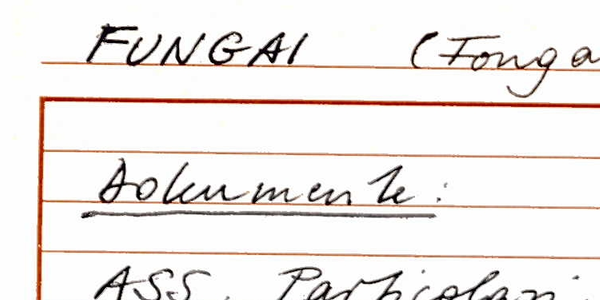 FUNGAI (Fonga
Dokumente:
ASS. Particolari